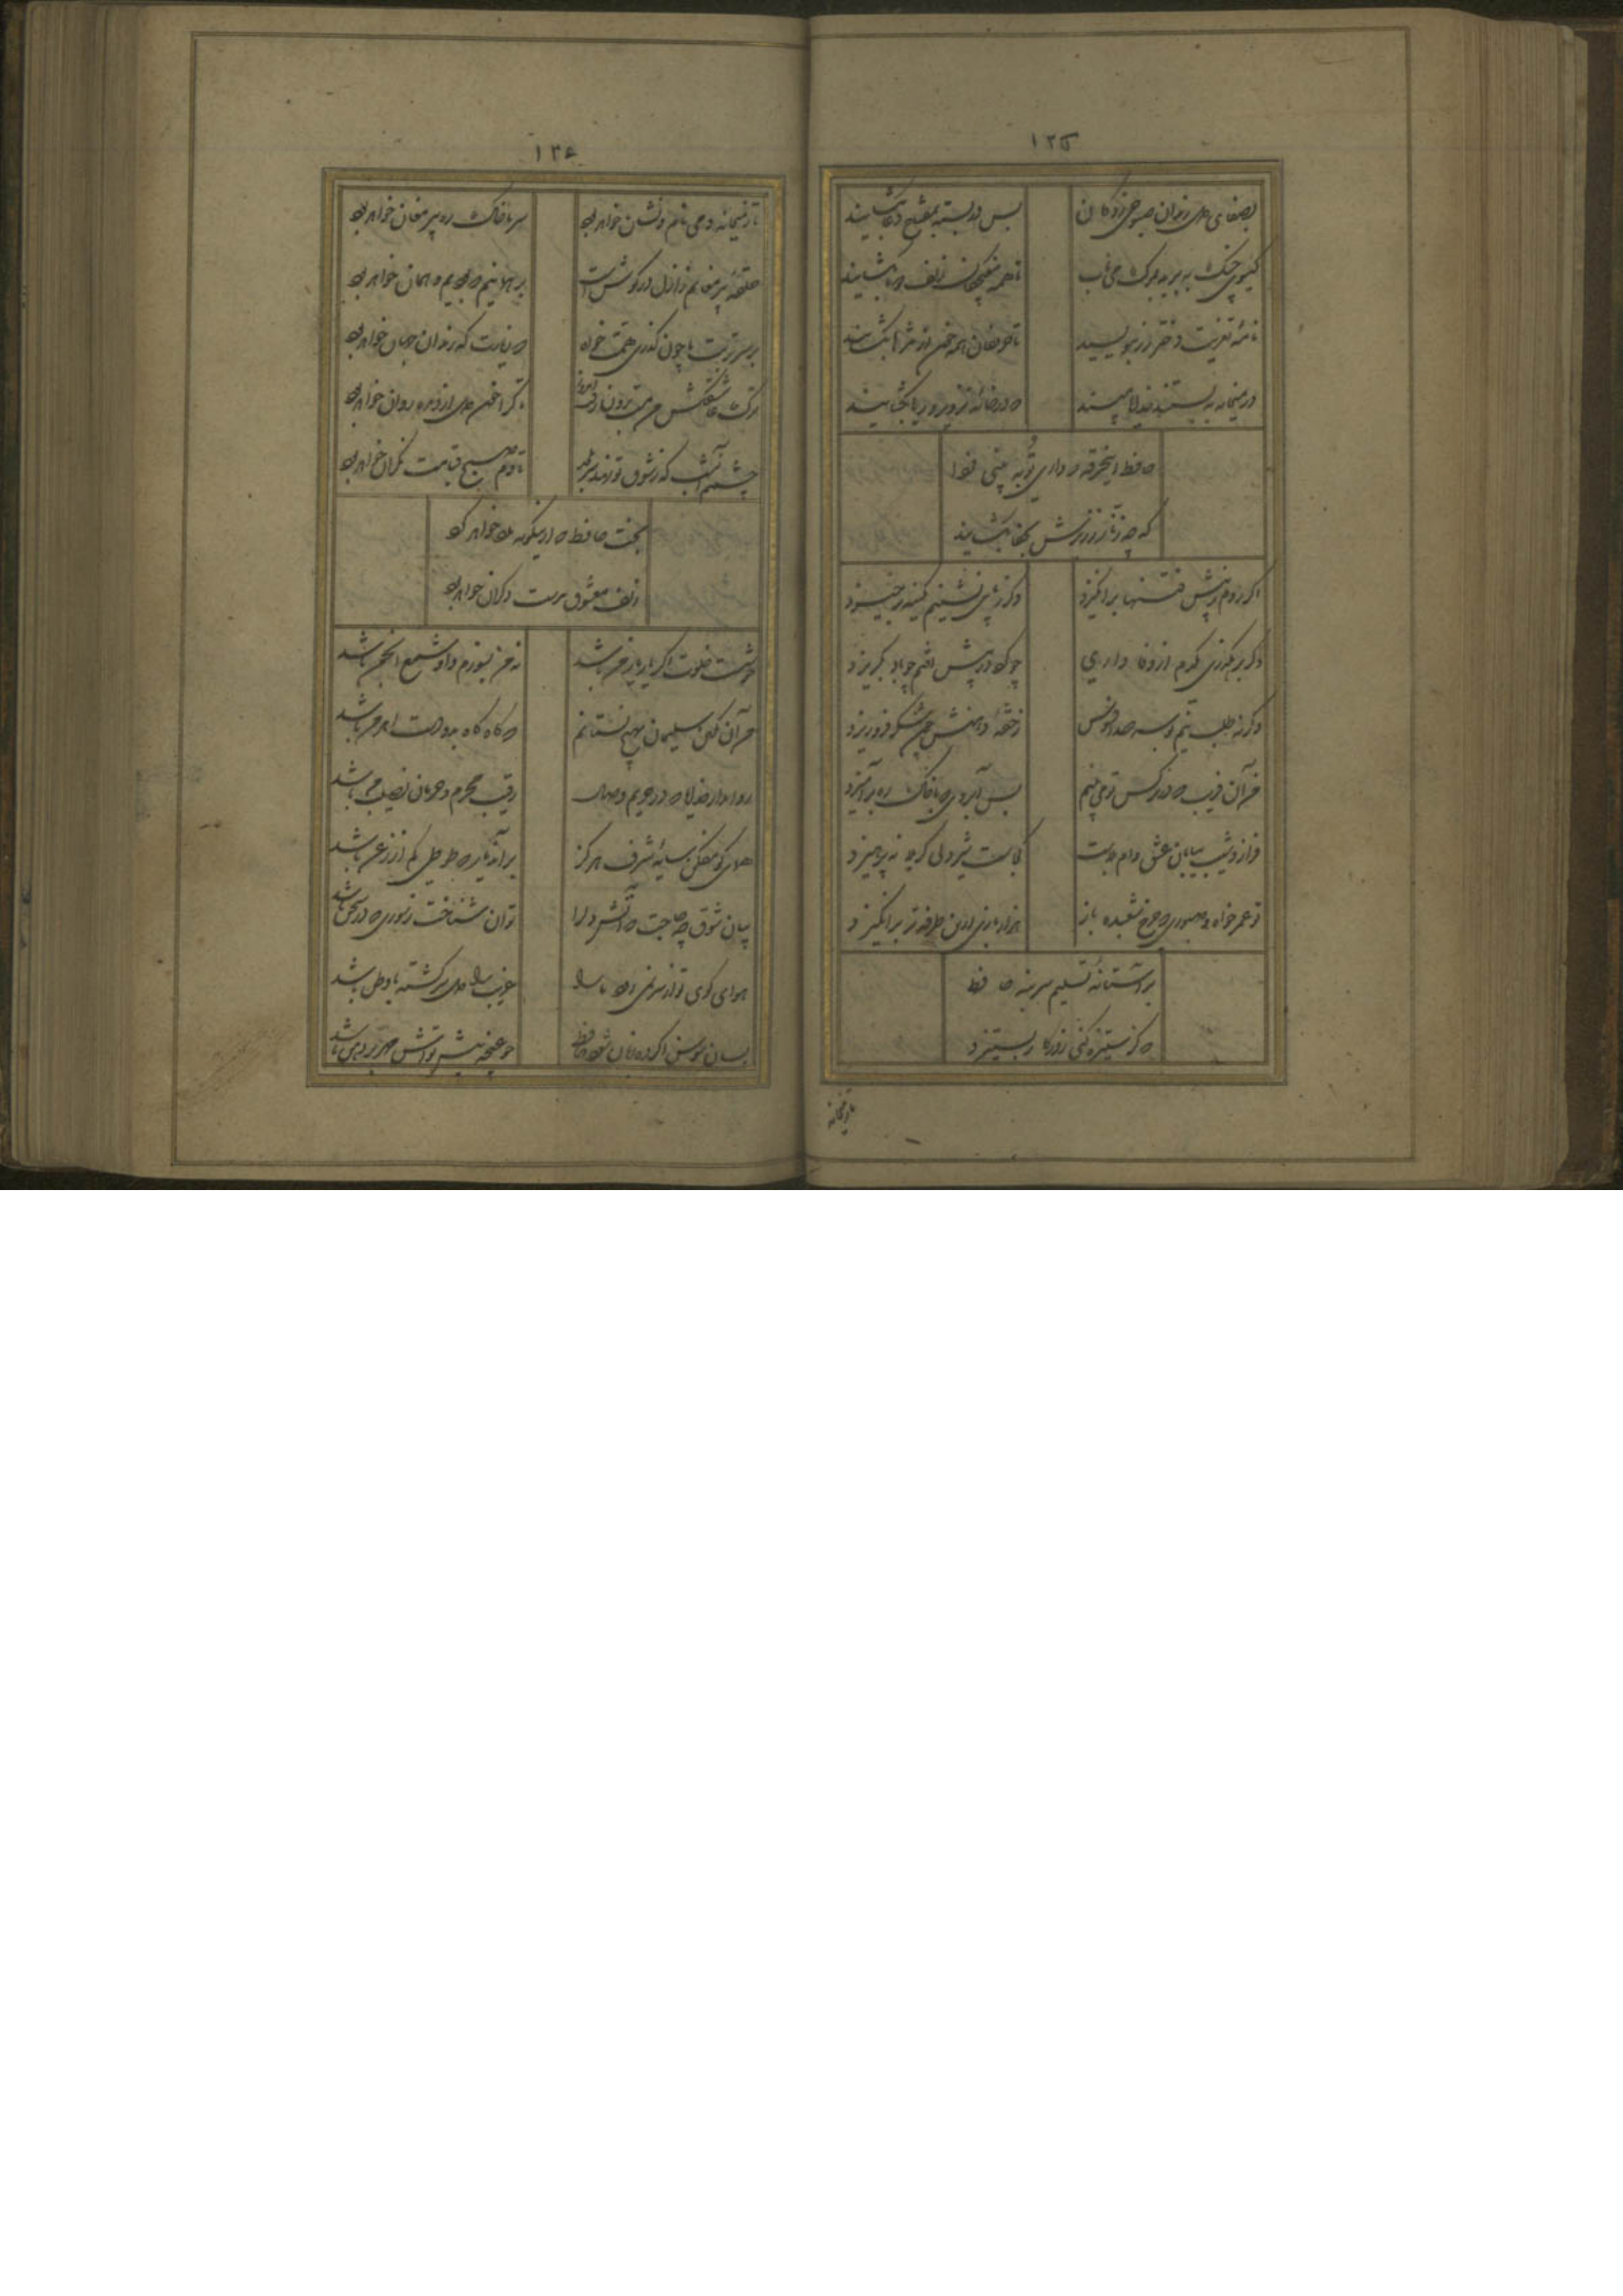 ۱۲۵
بصفای دل رندان صبوحی زدگان بس در بسته بمفتاح دعا بگشایند
گیسوی چنگ ببرید بمرگ می ناب تا همه مغبچگان زلف دوتا بگشایند
نامه تعزیت دختر رز بنویسید تا حریفان همه خون از مژه‌ها بگشایند
در میخانه ببستند خدایا مپسند که در خانه تزویر و ریا بگشایند
حافظ این خرقه که داری تو به بینی فردا
که چه زنار ز زیرش بجفا بگشایند
اگر روم ز پیش فتنها برانگیزد وگر ز پای نشینم بکینه برخیزد
وگر برهگذری یکدم از وفاداری چو گرد در پیش افتم چو باد بگریزد
وگر کنم طلب نیم بوسه صد افسوس ز حقه دهنش چون شکر فرو ریزد
من آن فریب که در نرگس تو می بینم بس آب روی که با خاک ره برآمیزد
فراز و شیب بیابان عشق دام بلاست کجاست شیردلی کز بلا نپرهیزد
تو عمر خواه و صبوری که چرخ شعبده باز هزار بازی ازین طرفه تر برانگیزد
بر آستانه تسلیم سر بنه حافظ
که گر ستیزه کنی روزگار بستیزد
تا ز میخانه
۱۲۶
تا ز میخانه و می نام و نشان خواهد بود سر ما خاک ره پیر مغان خواهد بود
حلقه پیر مغانم ز ازل در گوش است بر همانیم که بودیم و همان خواهد بود
بر سر تربت ما چون گذری همت خواه که زیارتگه رندان جهان خواهد بود
ترک عاشق‌کش من مست برون رفت امروز تا کرا خون دل از دیده روان خواهد بود
چشمم آن شب که ز شوق تو نهد سر بلحد تا دم صبح قیامت نگران خواهد بود
بخت حافظ گر ازینگونه مدد خواهد کرد
زلف معشوق بدست دگران خواهد بود
خوشست خلوت اگر یار یار من باشد نه من بسوزم و او شمع انجمن باشد
من آن نگین سلیمان بهیچ نستانم که گاه گاه برو دست اهرمن باشد
روا مدار خدایا که در حریم وصال رقیب محرم و حرمان نصیب من باشد
همای گو مفکن سایه شرف هرگز بر آن دیار که طوطی کم از زغن باشد
بیان شوق چه حاجت که آتش دل را توان شناخت ز سوزی که در سخن باشد
هوای کوی تو از سر نمی رود ما را غریب را دل سرگشته با وطن باشد
بسان سوسن اگر ده زبان شود حافظ چو غنچه پیش تواش مهر بر دهن باشد